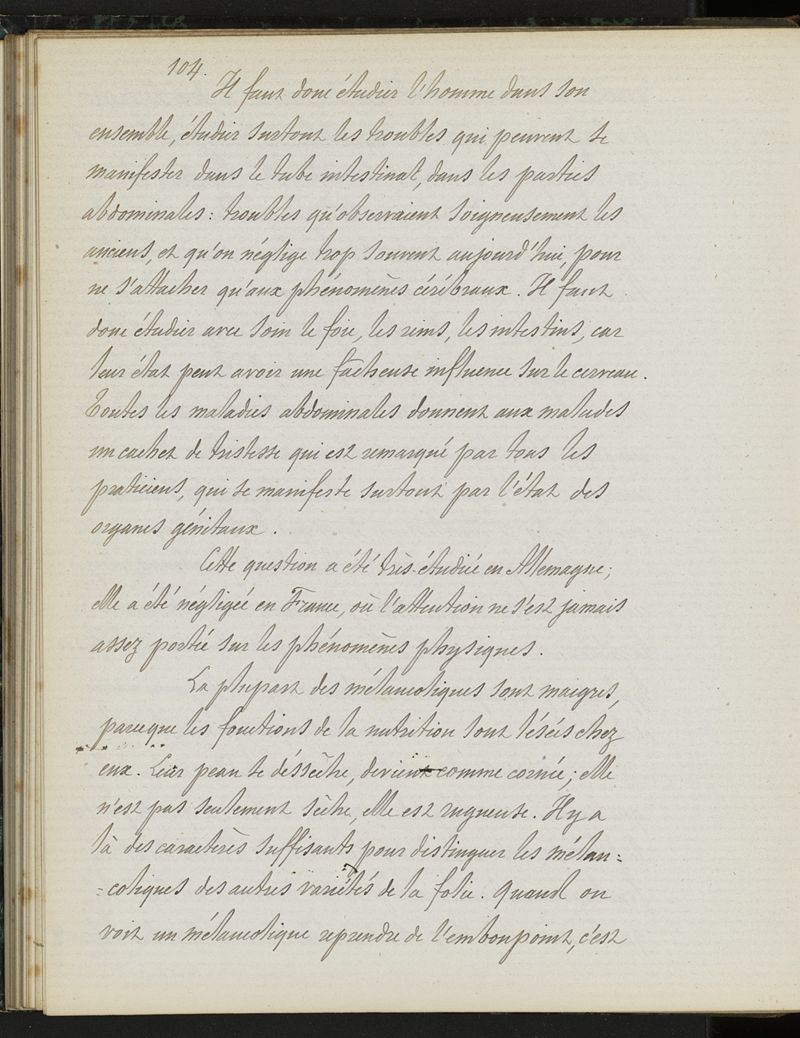 104.
Il faut donc étudier l'homme dans son
ensemble, étudier surtout les troubles qui peuvent se
manifester dans le tube intestinal, dans les parties
abdominales : troubles qu'observaient soigneusement les
anciens, et qu'on néglige trop souvent aujourd'hui, pour
ne s'attacher qu'aux phénomènes cérébraux. Il faut
donc étudier avec soin le foie, les reins, les intestins, car
leur état peut avoir une fâcheuse influence sur le cerveau.
Toutes les maladies abdominales donnent aux malades
un cachet de tristesse qui est remarqué par tous les
praticiens, qui se manifeste surtout par l'état des
organes génitaux.
Cette question a été très-étudiée en Allemagne;
elle a été négligée en France, où l'attention ne s'est jamais
assez portée sur les phénomènes physiques.
La plupart des mélancoliques sont maigres,
parceque les fonctions de la nutrition sont lésées chez
eux. Leur peau se déssèche, devient comme cornée; elle
n'est pas seulement sèche, elle est rugueuse. Il y a
là des caractères suffisants pour distinguer les mélan=
=coliques des autres variétés de la folie. Quand on
voit un mélancolique reprendre de l'embonpoint, c'est